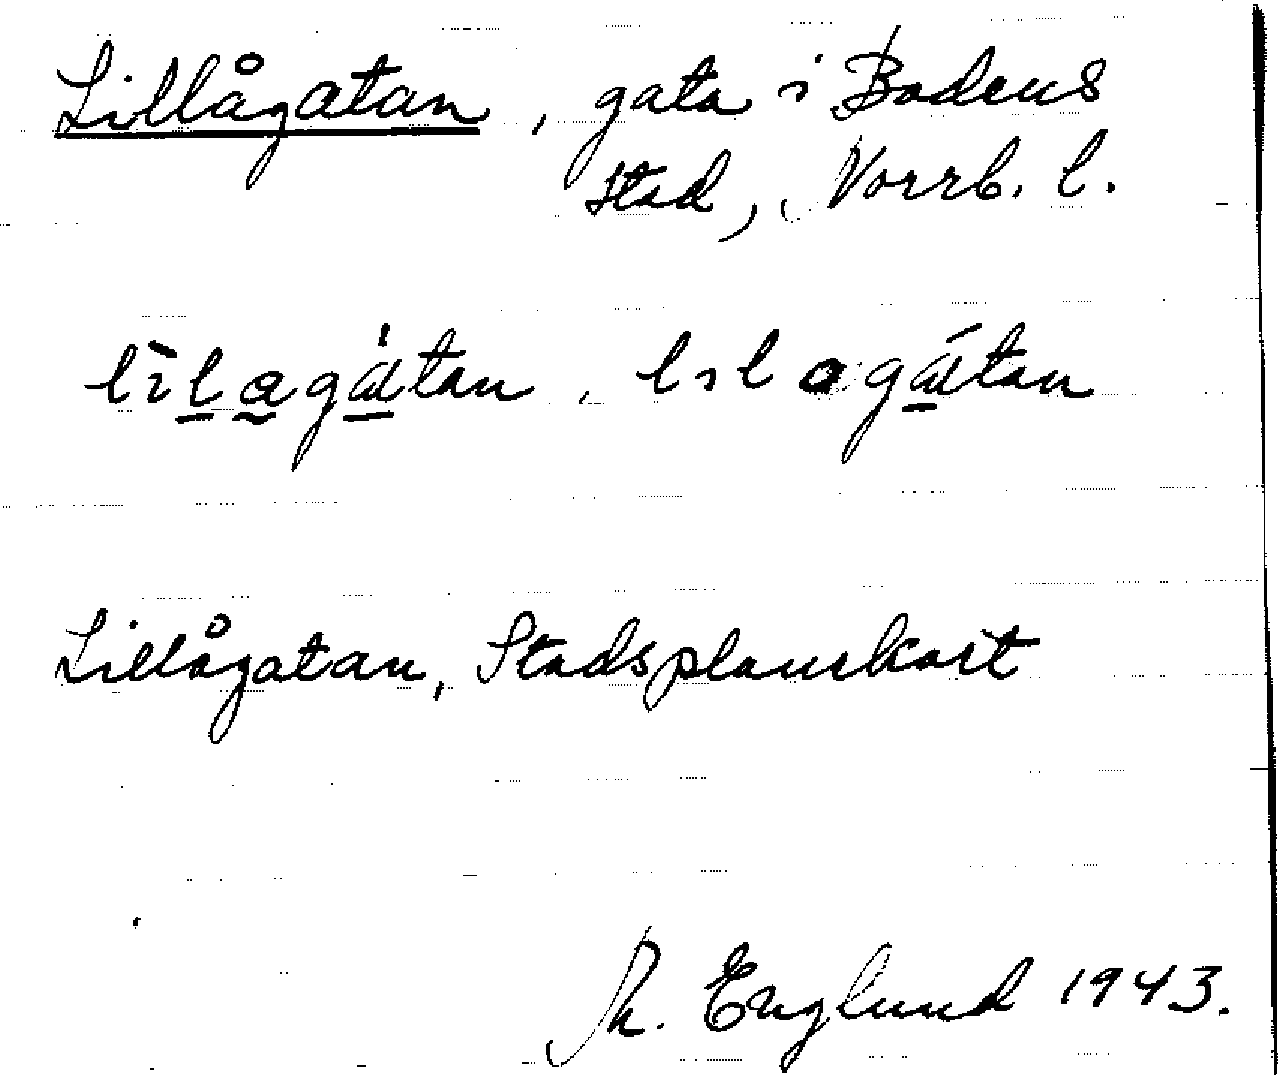 Lillågatan, gata i Bodens
stad, Norrb. l.
lìlagátan, lilagátan
Lillågatan, Stadsplanekart
R. Englund 1943.